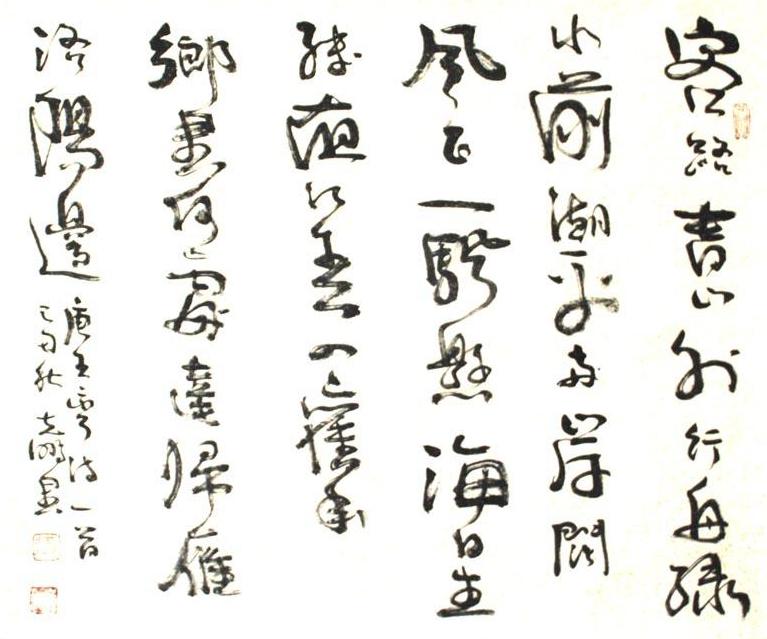 客路青山外行舟綠
水前潮平兩岸闊
風正一帆懸海日生
殘夜江春入舊年
鄉書何處達歸雁
洛陽邊
唐王灣詩一首
秋 鵬書